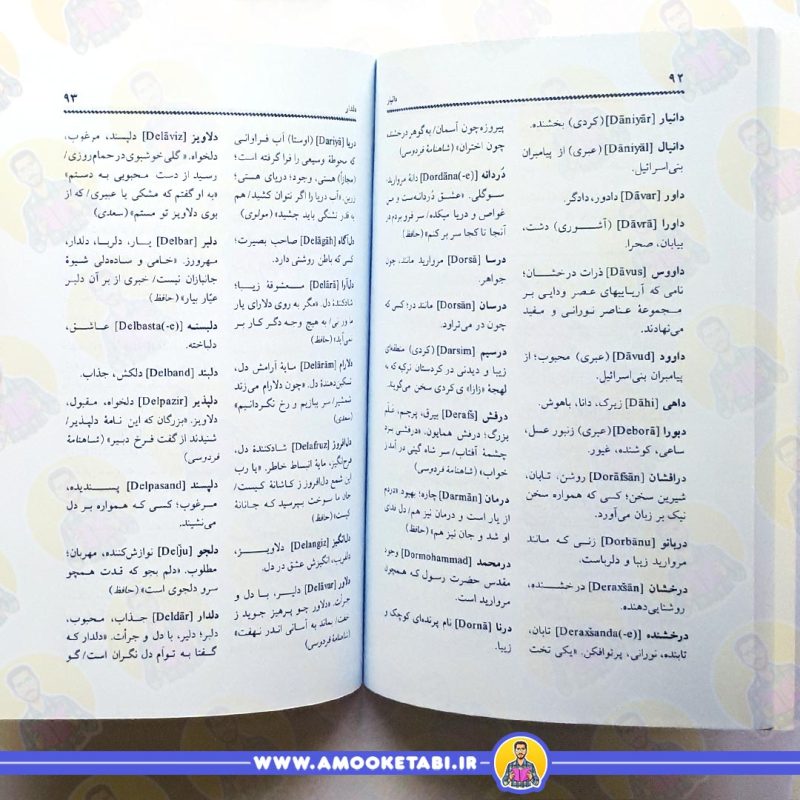 ۹۲
دانیار
دانیار [Dāniyār] (کردی) بخشنده.
دانیال [Dāniyāl] (عبری) از پیامبران
بنی‌اسرائیل.
داور [Dāvar] دادور، دادگر.
داورا [Dāvrā] (آشوری) دشت،
بیابان، صحرا.
داووس [Dāvus] ذرات درخشان؛
نامی که آریاییهای عصر ودایی بر
مجموعهٔ عناصر نورانی و مفید
می‌نهادند.
داوود [Dāvud] (عبری) محبوب؛ از
پیامبران بنی‌اسرائیل.
داهی [Dāhi] زیرک، دانا، باهوش.
دبورا [Deborā] (عبری) زنبور عسل،
ساعی، کوشنده، غیور.
درافشان [Dorāfšān] روشن، تابان،
شیرین سخن؛ کسی که همواره سخن
نیک بر زبان می‌آورد.
دربانو [Dorbānu] زنی که مانند
مروارید زیبا و دلرباست.
درخشان [Deraxšān] درخشنده،
روشنایی‌دهنده.
درخشنده [Deraxšanda(-e)] تابان،
تابنده، نورانی، پرتوافکن. «یکی تخت
پیروزه چون آسمان/ به گوهر درخشنده
چون اختران» (شاهنامهٔ فردوسی)
دُردانه [Dordāna(-e)] دانهٔ مروارید؛
سوگلی. «عشق دُردانه‌ست و من
غواص و دریا میکده/ سر فرو بردم در
آنجا تا کجا سر بر کنم» (حافظ)
درسا [Dorsā] مروارید مانند، چون
جواهر.
درسان [Dorsān] مانند در؛ کسی که
چون در می‌تراود.
درسیم [Darsim] (کردی) منطقه‌ای
زیبا و دیدنی در کردستان ترکیه که به
لهجهٔ «زازا»ی کردی سخن می‌گوید.
درفش [Derafš] بیرق، پرچم، علم
بزرگ؛ درفش همایون. «درفشی بزد
چشمهٔ آفتاب/ سر شاه گیتی در آمد ز
خواب» (شاهنامهٔ فردوسی)
درمان [Darmān] چاره؛ بهبود «دردم
از یار است و درمان نیز هم/ دل فدای
او شد و جان نیز هم» (حافظ)
درمحمد [Dormohammad] وجود
مقدس حضرت رسول که همچون
مروارید است.
درنا [Dornā] نام پرنده‌ای کوچک و
زیبا.
۹۳
دلدار
دریا [Dariyā] (اوستا) آب فراوانی
که محوطهٔ وسیعی را فرا گرفته است؛
(مجازاً) هستی، وجود؛ دریای هستی؛
زرین. «آب دریا را اگر نتوان کشید/ هم
به قدر تشنگی باید چشید» (مولوی)
دل‌آگاه [Delāgāh] صاحب بصیرت؛
کسی که باطن روشنی دارد.
دل‌آرا [Delārā] معشوقهٔ زیبا؛
شادکنندهٔ دل. «مگر به روی دلارای یار
ما ورنی/ به هیچ وجه دگر کار بر
نمی‌آید» (حافظ)
دلارام [Delārām] مایهٔ آرامش دل،
تسکین‌دهندهٔ دل. «چون دلارام می‌زند
شمشیر/ سر ببازیم و رخ نگردانیم»
(سعدی)
دل‌افروز [Delafruz] شادکنندهٔ دل،
فرح‌انگیز، مایهٔ انبساط خاطر. «یا رب
این شمع دل‌افروز ز کاشانهٔ کیست/
جان ما سوخت بپرسید که جانانهٔ
کیست» (حافظ)
دل‌انگیز [Delangiz] دلاویز،
دلفریب، انگیزش عشق در دل.
دلاور [Delāvar] دلیر، با دل و
جرأت. «دلاور چو پرهیز جوید ز
جفت/ بماند به آسانی اندر نهفت»
(شاهنامهٔ فردوسی)
دلاویز [Delāviz] دلپسند، مرغوب،
دلخواه. «گلی خوشبوی در حمام روزی/
رسید از دست محبوبی به دستم»
«به او گفتم که مشکی یا عبیری/ که از
بوی دلاویز تو مستم» (سعدی)
دلبر [Delbar] یار، دلربا، دلدار،
مهرورز. «خامی و ساده‌دلی شیوهٔ
جانبازان نیست/ خبری از بر آن دلبر
عیّار بیار» (حافظ)
دلبسته [Delbasta(-e)] عاشق،
دلباخته.
دلبند [Delband] دلکش، جذاب.
دلپذیر [Delpazir] دلخواه، مقبول،
دلاویز. «بزرگان که این نامهٔ دلپذیر/
شنیدند از گفت فرخ دبیر» (شاهنامهٔ
فردوسی)
دلپسند [Delpasand] پسندیده،
مرغوب؛ کسی که همواره بر دل
می‌نشیند.
دلجو [Delju] نوازش‌کننده، مهربان؛
مطلوب. «دلم بجو که قدت همچو
سرو دلجوی است» (حافظ)
دلدار [Deldār] جذاب، محبوب،
دلبر؛ دلیر، با دل و جرأت. «دلدار که
گفتا به توأم دل نگران است/ گو
WWW.AMOOKETABI.IR